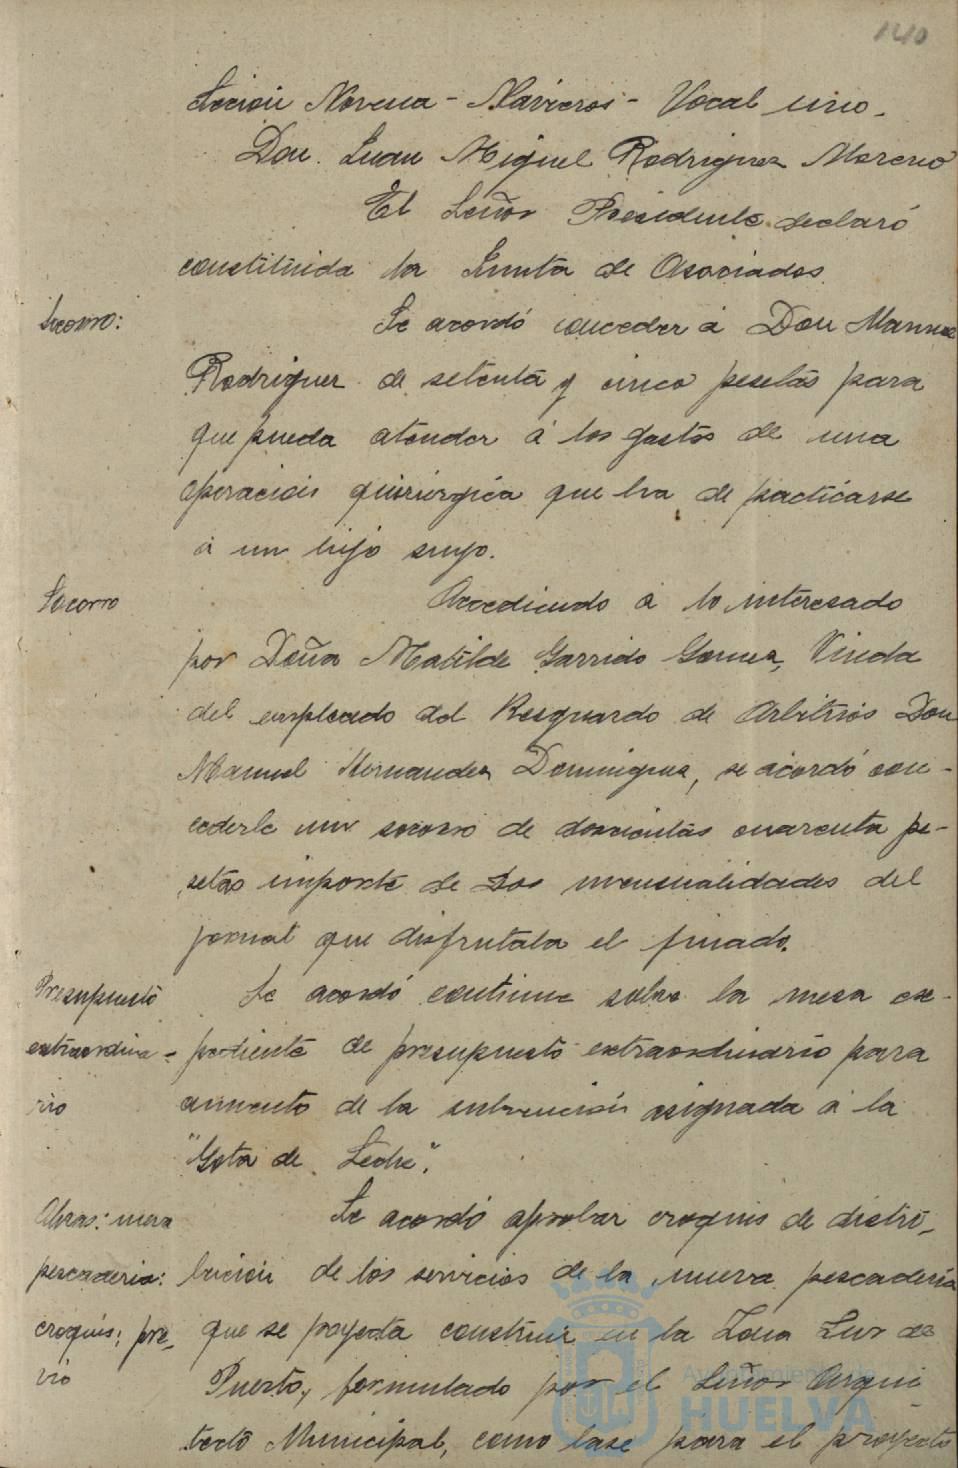 140
Sección Novena - Navieros - Vocal uno.
Don Juan Miguel Rodriguez Moreno
El Señor Presidente declaró
constituida la Junta de Asociados
Socorro:
Se acordó conceder á Don Manuel
Rodriguez de setenta y cinco pesetas para
que pueda atender á los gastos de una
operación quirúrgica que ha de practicarse
á un hijo suyo.
Socorro
Accediendo á lo interesado
por Doña Matilde Garrido Gomez, Viuda
del empleado del Resguardo de Arbitrios Don
Manuel Hernandez Dominguez, se acordó con-
cederle un socorro de doscientas cuarenta pe-
setas importe de dos mensualidades del
jornal que disfrutaba el finado.
Presupuesto
extraordina-
rio
Se acordó continue sobre la mesa ex-
pediente de presupuesto extraordinario para
aumento de la subvención asignada á la
"Gota de Leche".
Obras: nueva
pescaderia:
croquis: pre-
vio
Se acordó aprobar croquis de distri-
bución de los servicios de la nueva pescadería
que se proyecta construir en la Zona Sur de
Puerto, formulado por el Señor Arqui
tecto Municipal, como base para el proyecto
Ayuntamiento de
HUELVA